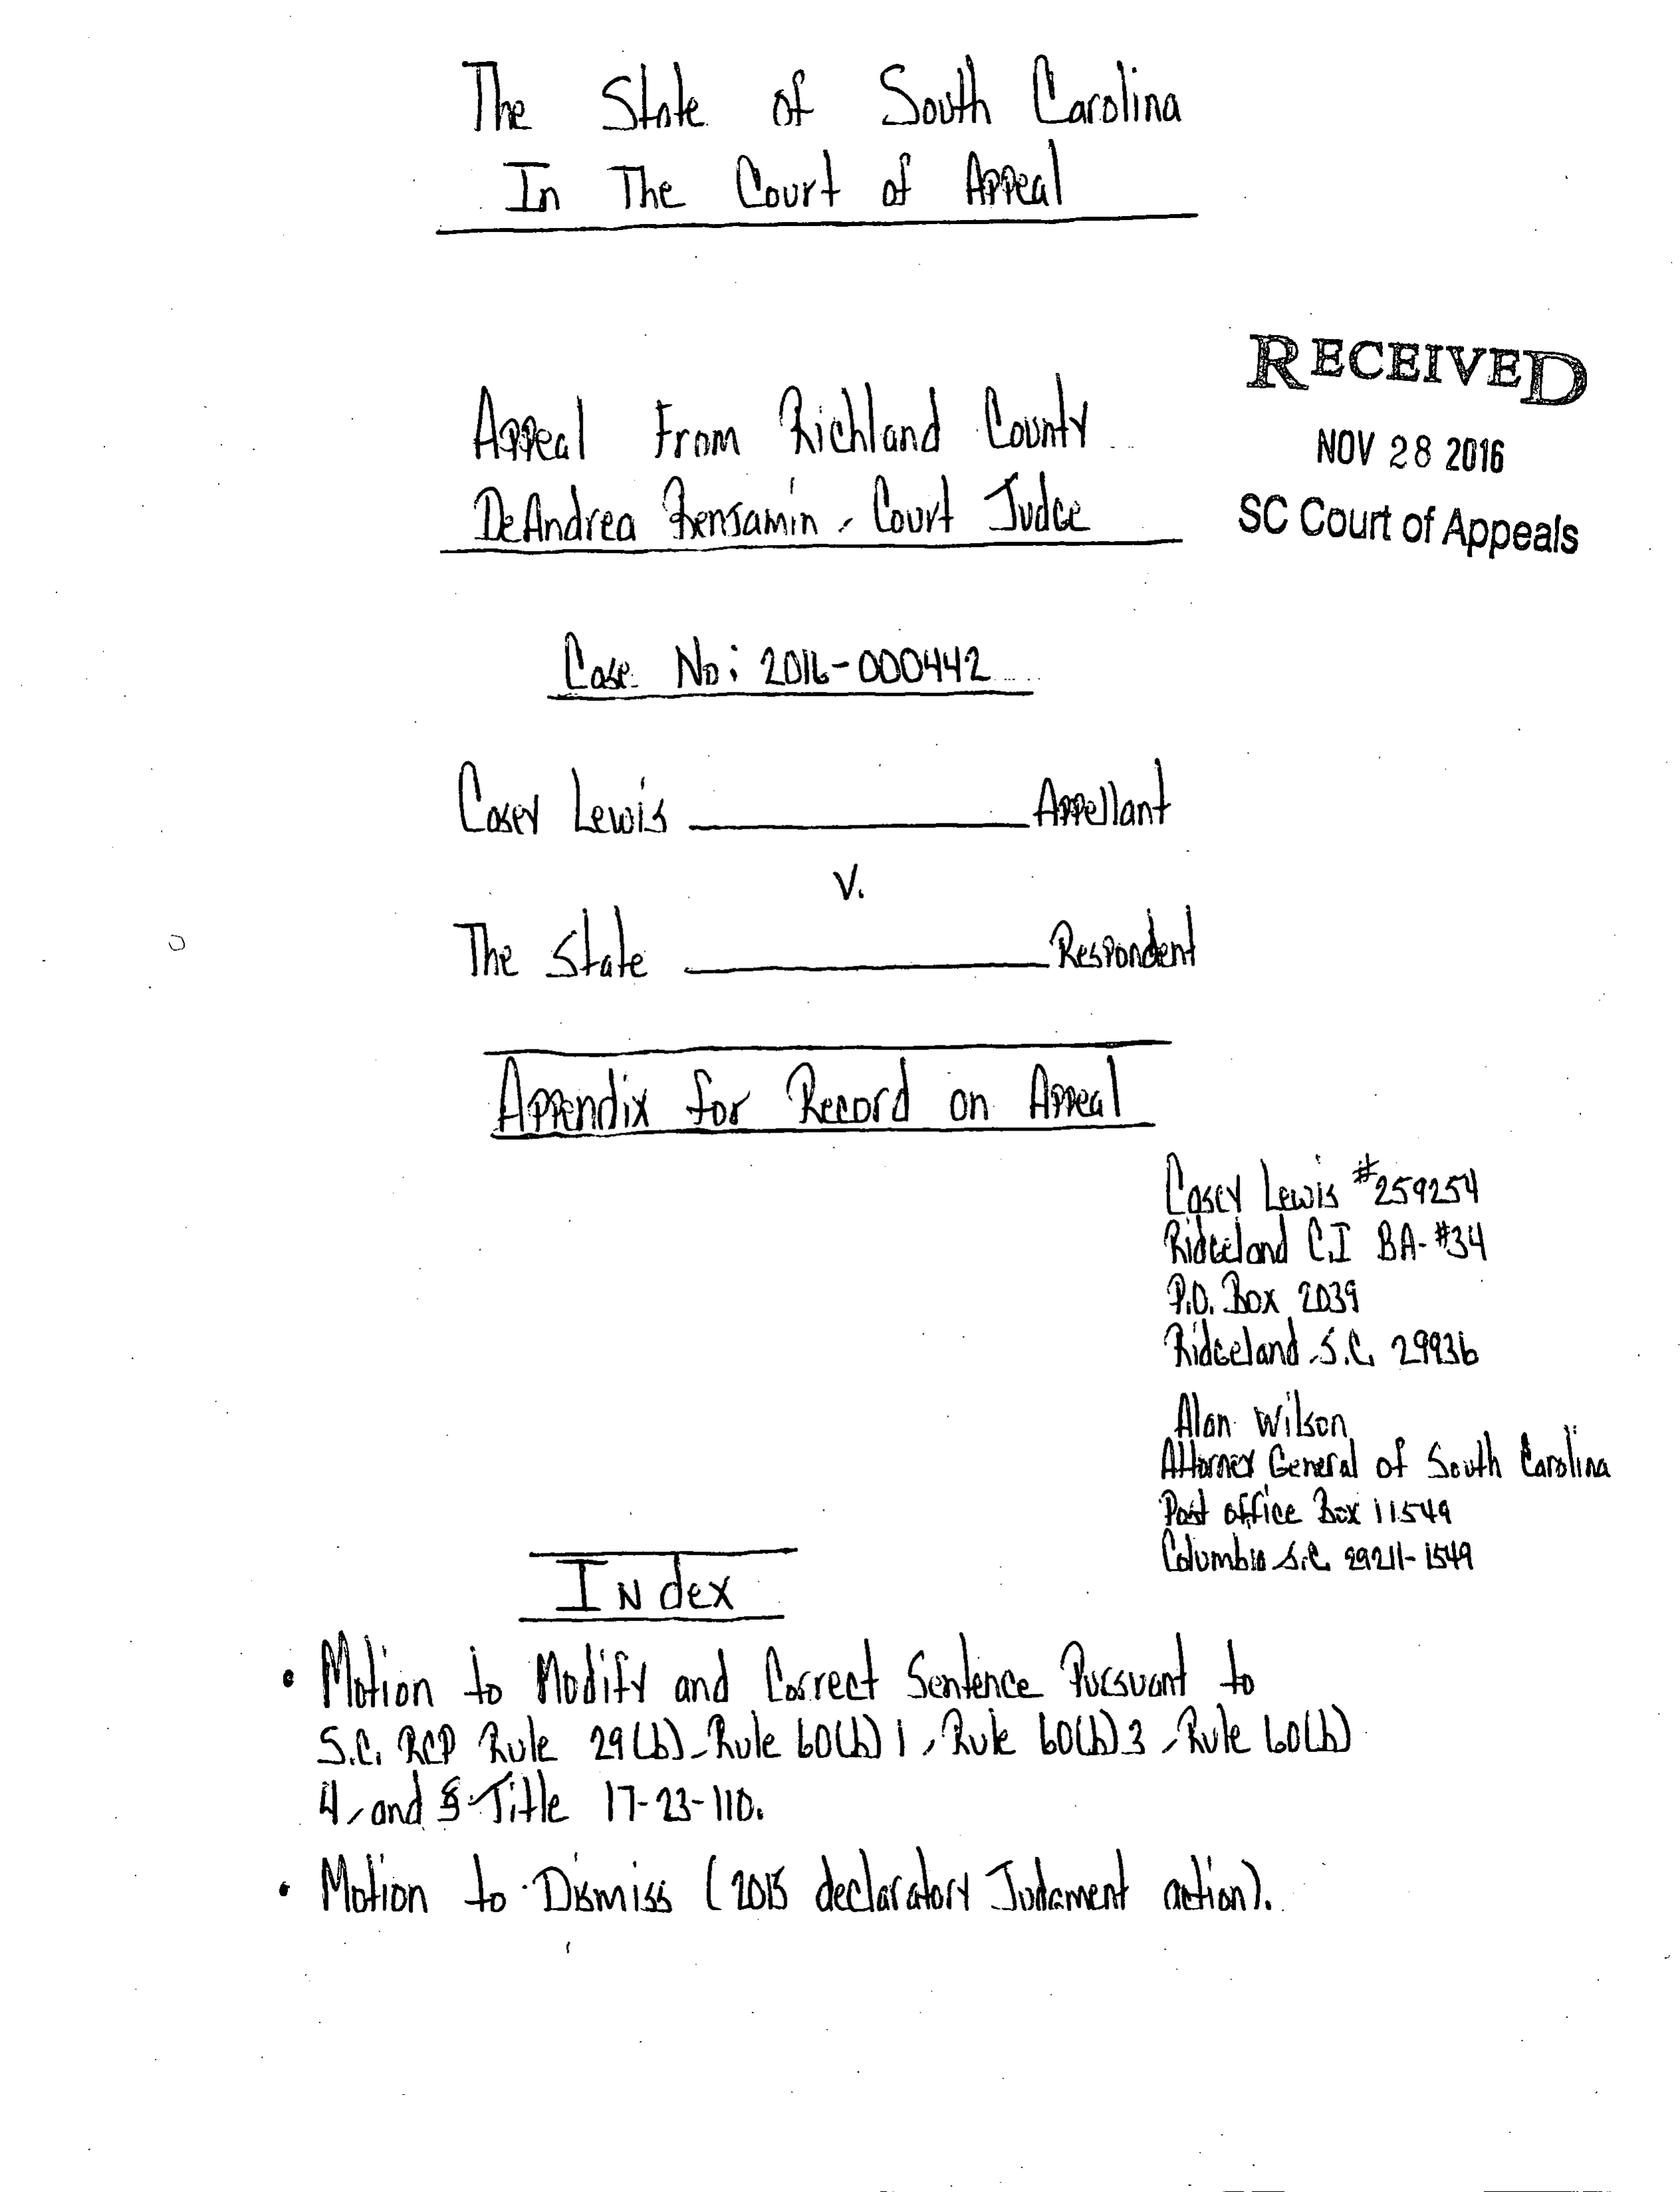 The State of South Carolina
In The Court of Appeal
RECEIVED
NOV 28 2016
SC Court of Appeals
Appeal From Richland County
DeAndrea Benjamin, Court Judge
Case No: 2016-000442
Casey Lewis Appellant
V.
The State Respondent
Appendix for Record on Appeal
Casey Lewis #259254
Ridgeland C.I BA-#34
P.O. Box 2039
Ridgeland, S.C. 29936
Alan Wilson
Attorney General of South Carolina
Post office Box 11549
Columbia S.C. 29211-1549
Index
• Motion to Modify and Correct Sentence Pursuant to
S.C. RCP Rule 29(b), Rule 60(b) 1, Rule 60(b) 3, Rule 60(b)
4, and § Title 17-23-110.
• Motion to Dismiss (2015 declaratory Judgment action).